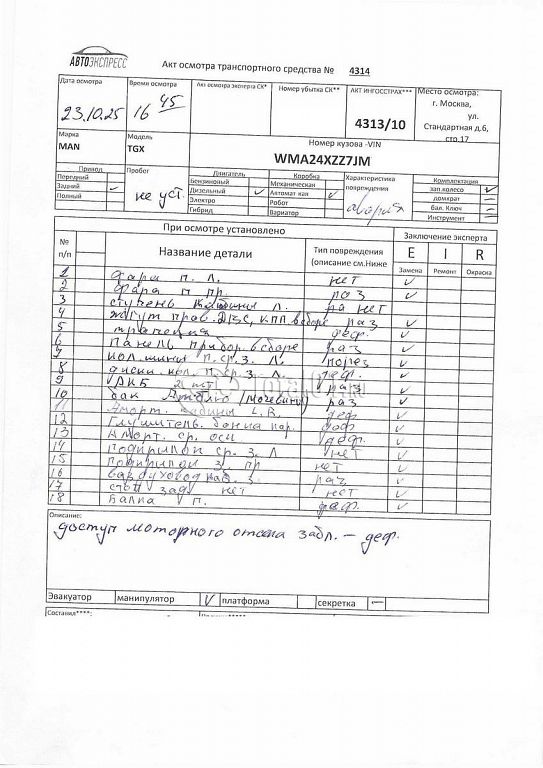 АВТОЭКСПРЕСС
Акт осмотра транспортного средства № 4314
Дата осмотра
23.10.25
Время осмотра
16 45
Акт осмотра эксперта СК*
Номер убытка СК**
АКТ ИНГОССТРАХ***
4313/10
Место осмотра:
г. Москва,
ул.
Стандартная д.6,
стр.17
Марка
MAN
Модель
TGX
Номер кузова -VIN
WMA24XZZ7JM
Привод
Передний
Задний
Полный
Пробег
не уст.
Двигатель
Бензиновый
Дизельный
Электро
Гибрид
Коробка
Механическая
Автомат кая
Робот
Вариатор
Характеристика
повреждения
авария
Комплектация
зап.колесо
домкрат
бал. Ключ
Инструмент
При осмотре установлено
Заключение эксперта
№
п/п
Название детали
Тип повреждения
(описание см.Ниже
E I R
Замена Ремонт Окраска
1 Фара п. Л. нет
2 Фара п пр. раз
3 ступень кабины л. нет
4 жгут прав. ДВС, КПП в сборе раз
5 деф.
6 Панель прибор. в сборе раз
7 кол. шины п. ср. з. Л. порез
8 диски кол. п. ср. з. Л. деф.
9 АКБ 2 шт раз
10 бак Adblue (мочевины) раз
11 Аморт. кабины L. R. деф
12 Глушитель. бочка пар. деф
13 Аморт. ср. оси деф.
14 Подкрылок ср. з. Л нет
15 Подкрылок з пр нет
16 каб. з. раз
17 стоп зад. нет нет
18 Балка п. деф.
Описание:
доступ моторного отсека забл. – деф.
Эвакуатор манипулятор V платформа секретка —
Составил****: